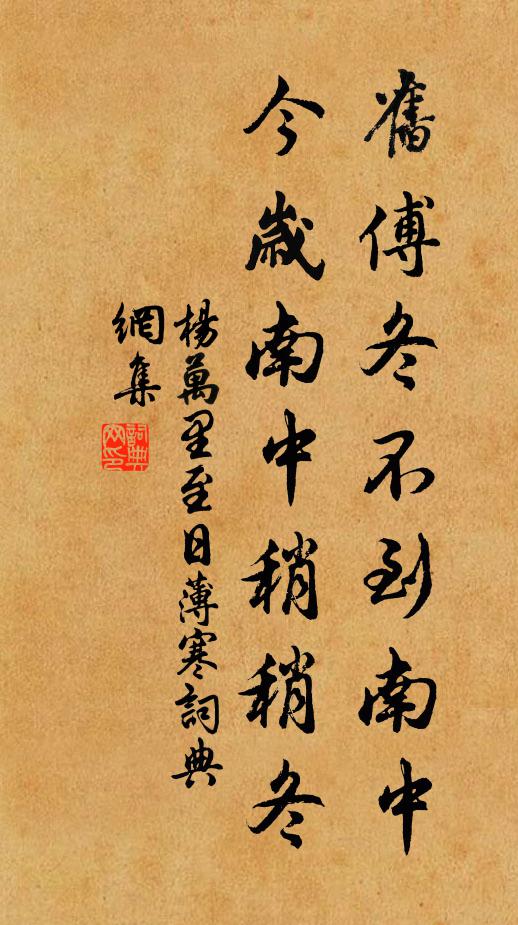 舊傅冬不到南中
今歲南中稍稍冬
楊萬里至日薄寒詞典
網集
詞典
网印